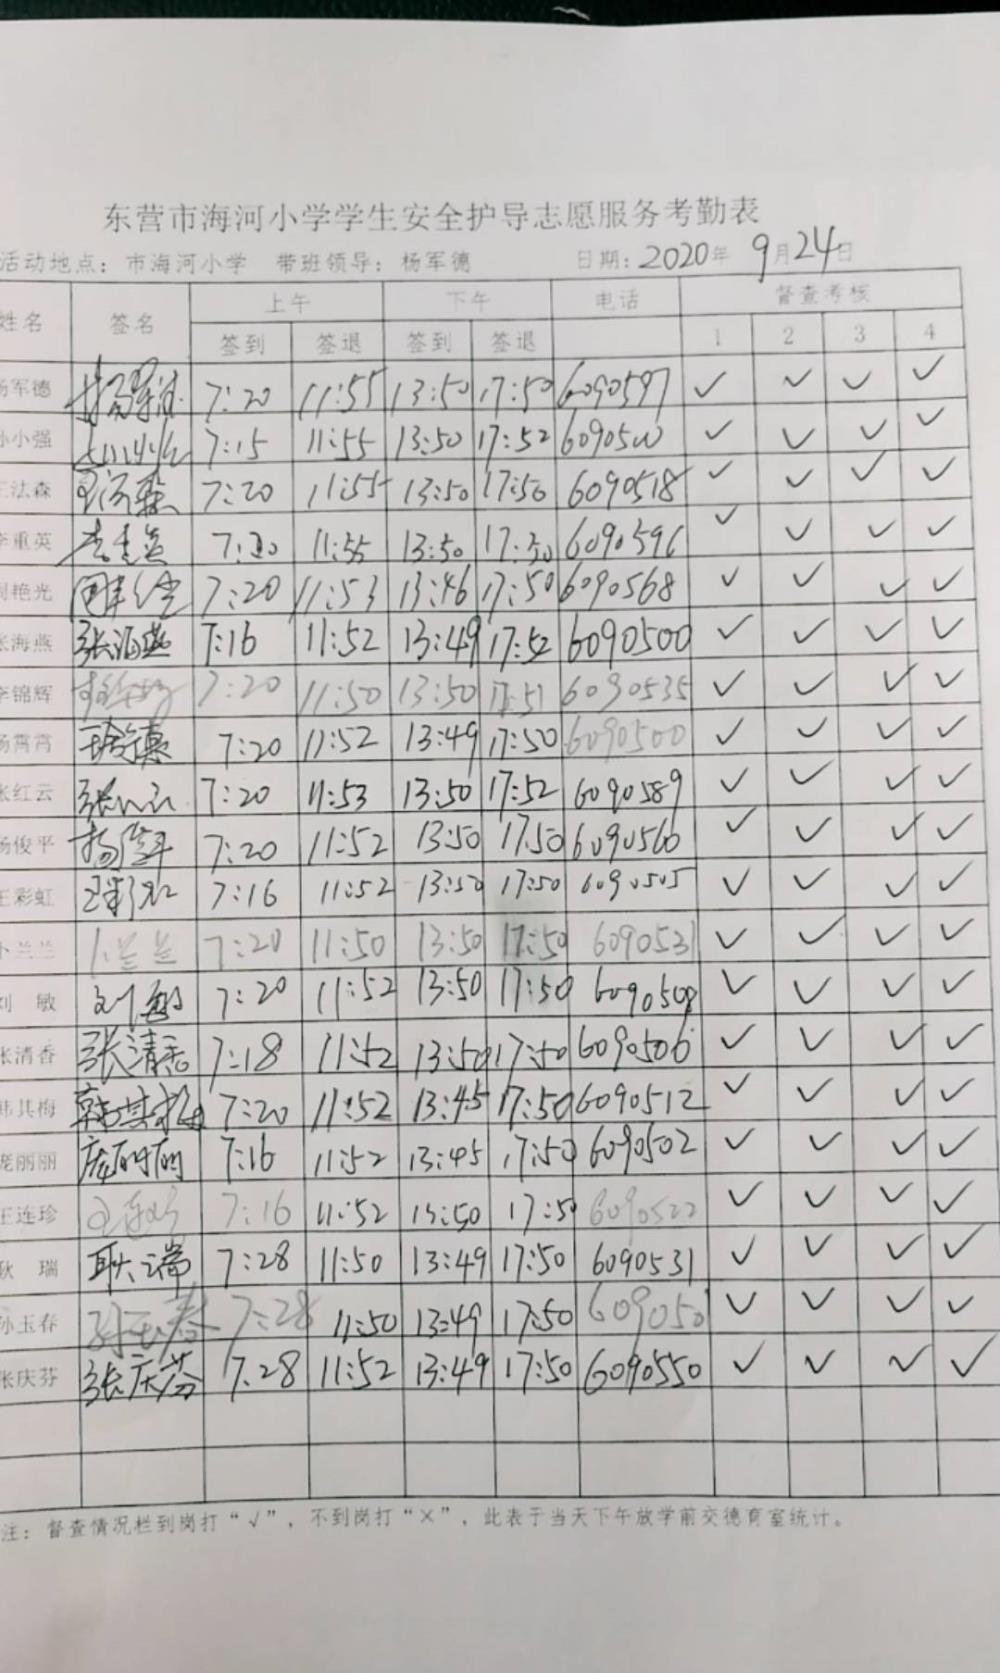 东营市海河小学学生安全护导志愿服务考勤表
活动地点：市海河小学 带班领导：杨军德 日期：2020年 9月24日
姓名 签名 上午 下午 电话 督查考核
签到 签退 签到 签退 1 2 3 4
杨军德 杨军德 7:20 11:55 13:50 17:50 6090597 ✓ ✓ ✓ ✓
孙小强 7:15 11:55 13:50 17:52 ✓ ✓ ✓ ✓
王法森 王法森 7:20 11:55 13:50 17:50 6090518 ✓ ✓ ✓ ✓
李重英 李重英 7:20 11:55 13:50 17:50 6090596 ✓ ✓ ✓ ✓
周艳光 周艳光 7:20 11:53 13:46 17:50 6090568 ✓ ✓ ✓ ✓
张海燕 张海燕 7:16 11:52 13:49 17:52 6090500 ✓ ✓ ✓ ✓
李锦辉 7:20 11:50 13:50 17:51 6090535 ✓ ✓ ✓ ✓
杨霄霄 7:20 11:52 13:49 17:50 6090500 ✓ ✓ ✓ ✓
张红云 张红云 7:20 11:53 13:50 17:52 6090589 ✓ ✓ ✓ ✓
杨俊平 杨俊平 7:20 11:52 13:50 17:50 6090560 ✓ ✓ ✓ ✓
王彩虹 王彩虹 7:16 11:52 13:50 17:50 6090505 ✓ ✓ ✓ ✓
卜兰兰 卜兰兰 7:20 11:50 13:50 17:50 6090531 ✓ ✓ ✓ ✓
刘 敏 刘敏 7:20 11:52 13:50 17:50 6090508 ✓ ✓ ✓ ✓
张清香 张清香 7:18 11:52 13:50 17:50 6090506 ✓ ✓ ✓ ✓
韩其梅 韩其梅 7:20 11:52 13:45 17:50 6090512 ✓ ✓ ✓ ✓
庞丽丽 庞丽丽 7:16 11:52 13:45 17:50 6090502 ✓ ✓ ✓ ✓
王连珍 王连珍 7:16 11:52 13:50 17:50 6090522 ✓ ✓ ✓ ✓
耿 瑞 耿瑞 7:28 11:50 13:49 17:50 6090531 ✓ ✓ ✓ ✓
孙玉春 孙玉春 7:28 11:50 13:49 17:50 609050 ✓ ✓ ✓ ✓
张庆芬 张庆芬 7:28 11:52 13:49 17:50 6090550 ✓ ✓ ✓ ✓
注：督查情况栏到岗打“√”，不到岗打“×”，此表于当天下午放学前交德育室统计。